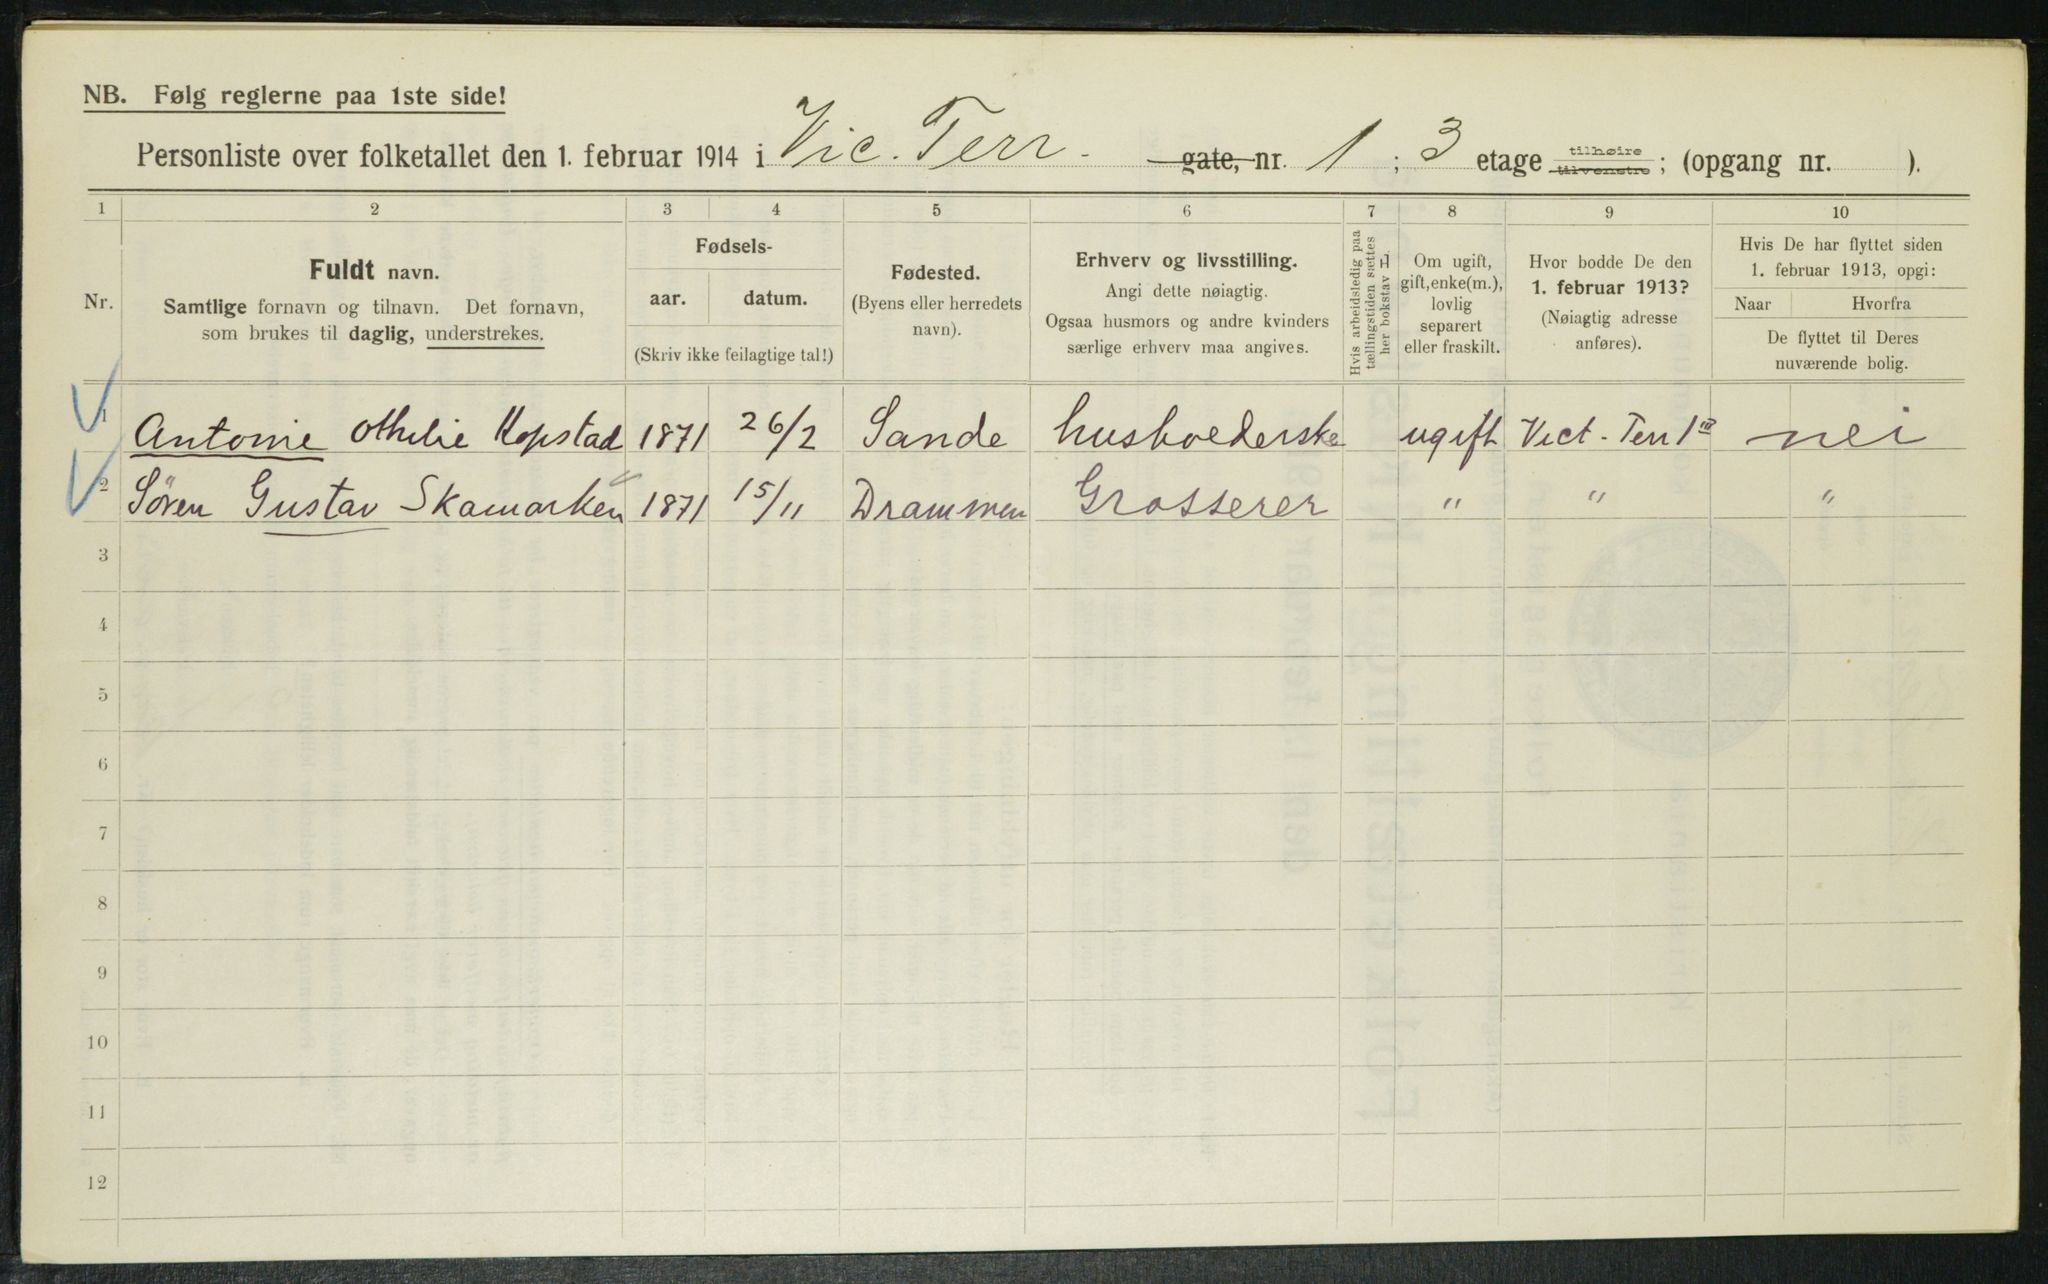 NB. Følg reglerne paa 1ste side!
Personliste over folketallet den 1. februar 1914 i Vic. Terr. gate, nr. 1 ; 3 etage tilhøire tilvenstre ; (opgang nr. ).
1 2 3 4 5 6 7 8 9 10
Nr.
Fuldt navn.
Samtlige fornavn og tilnavn. Det fornavn,
som brukes til daglig, understrekes.
Fødsels-
aar. datum.
(Skriv ikke feilagtige tal!)
Fødested.
(Byens eller herredets
navn).
Erhverv og livsstilling.
Angi dette nøiagtig.
Ogsaa husmors og andre kvinders
særlige erhverv maa angives.
Hvis arbeidsledig paa
tællingstiden sættes
her bokstav L
Om ugift,
gift, enke(m.),
lovlig
separert
eller fraskilt.
Hvor bodde De den
1. februar 1913?
(Nøiagtig adresse
anføres).
Hvis De har flyttet siden
1. februar 1913, opgi:
Naar Hvorfra
De flyttet til Deres
nuværende bolig.
1 Antonie Othilie Kopstad 1871 26/2 Sande husholderske ugift Vict. Terr 1 III nei
2 Sören Gustav Skamarken 1871 15/11 Drammen Grosserer " " "
3
4
5
6
7
8
9
10
11
12